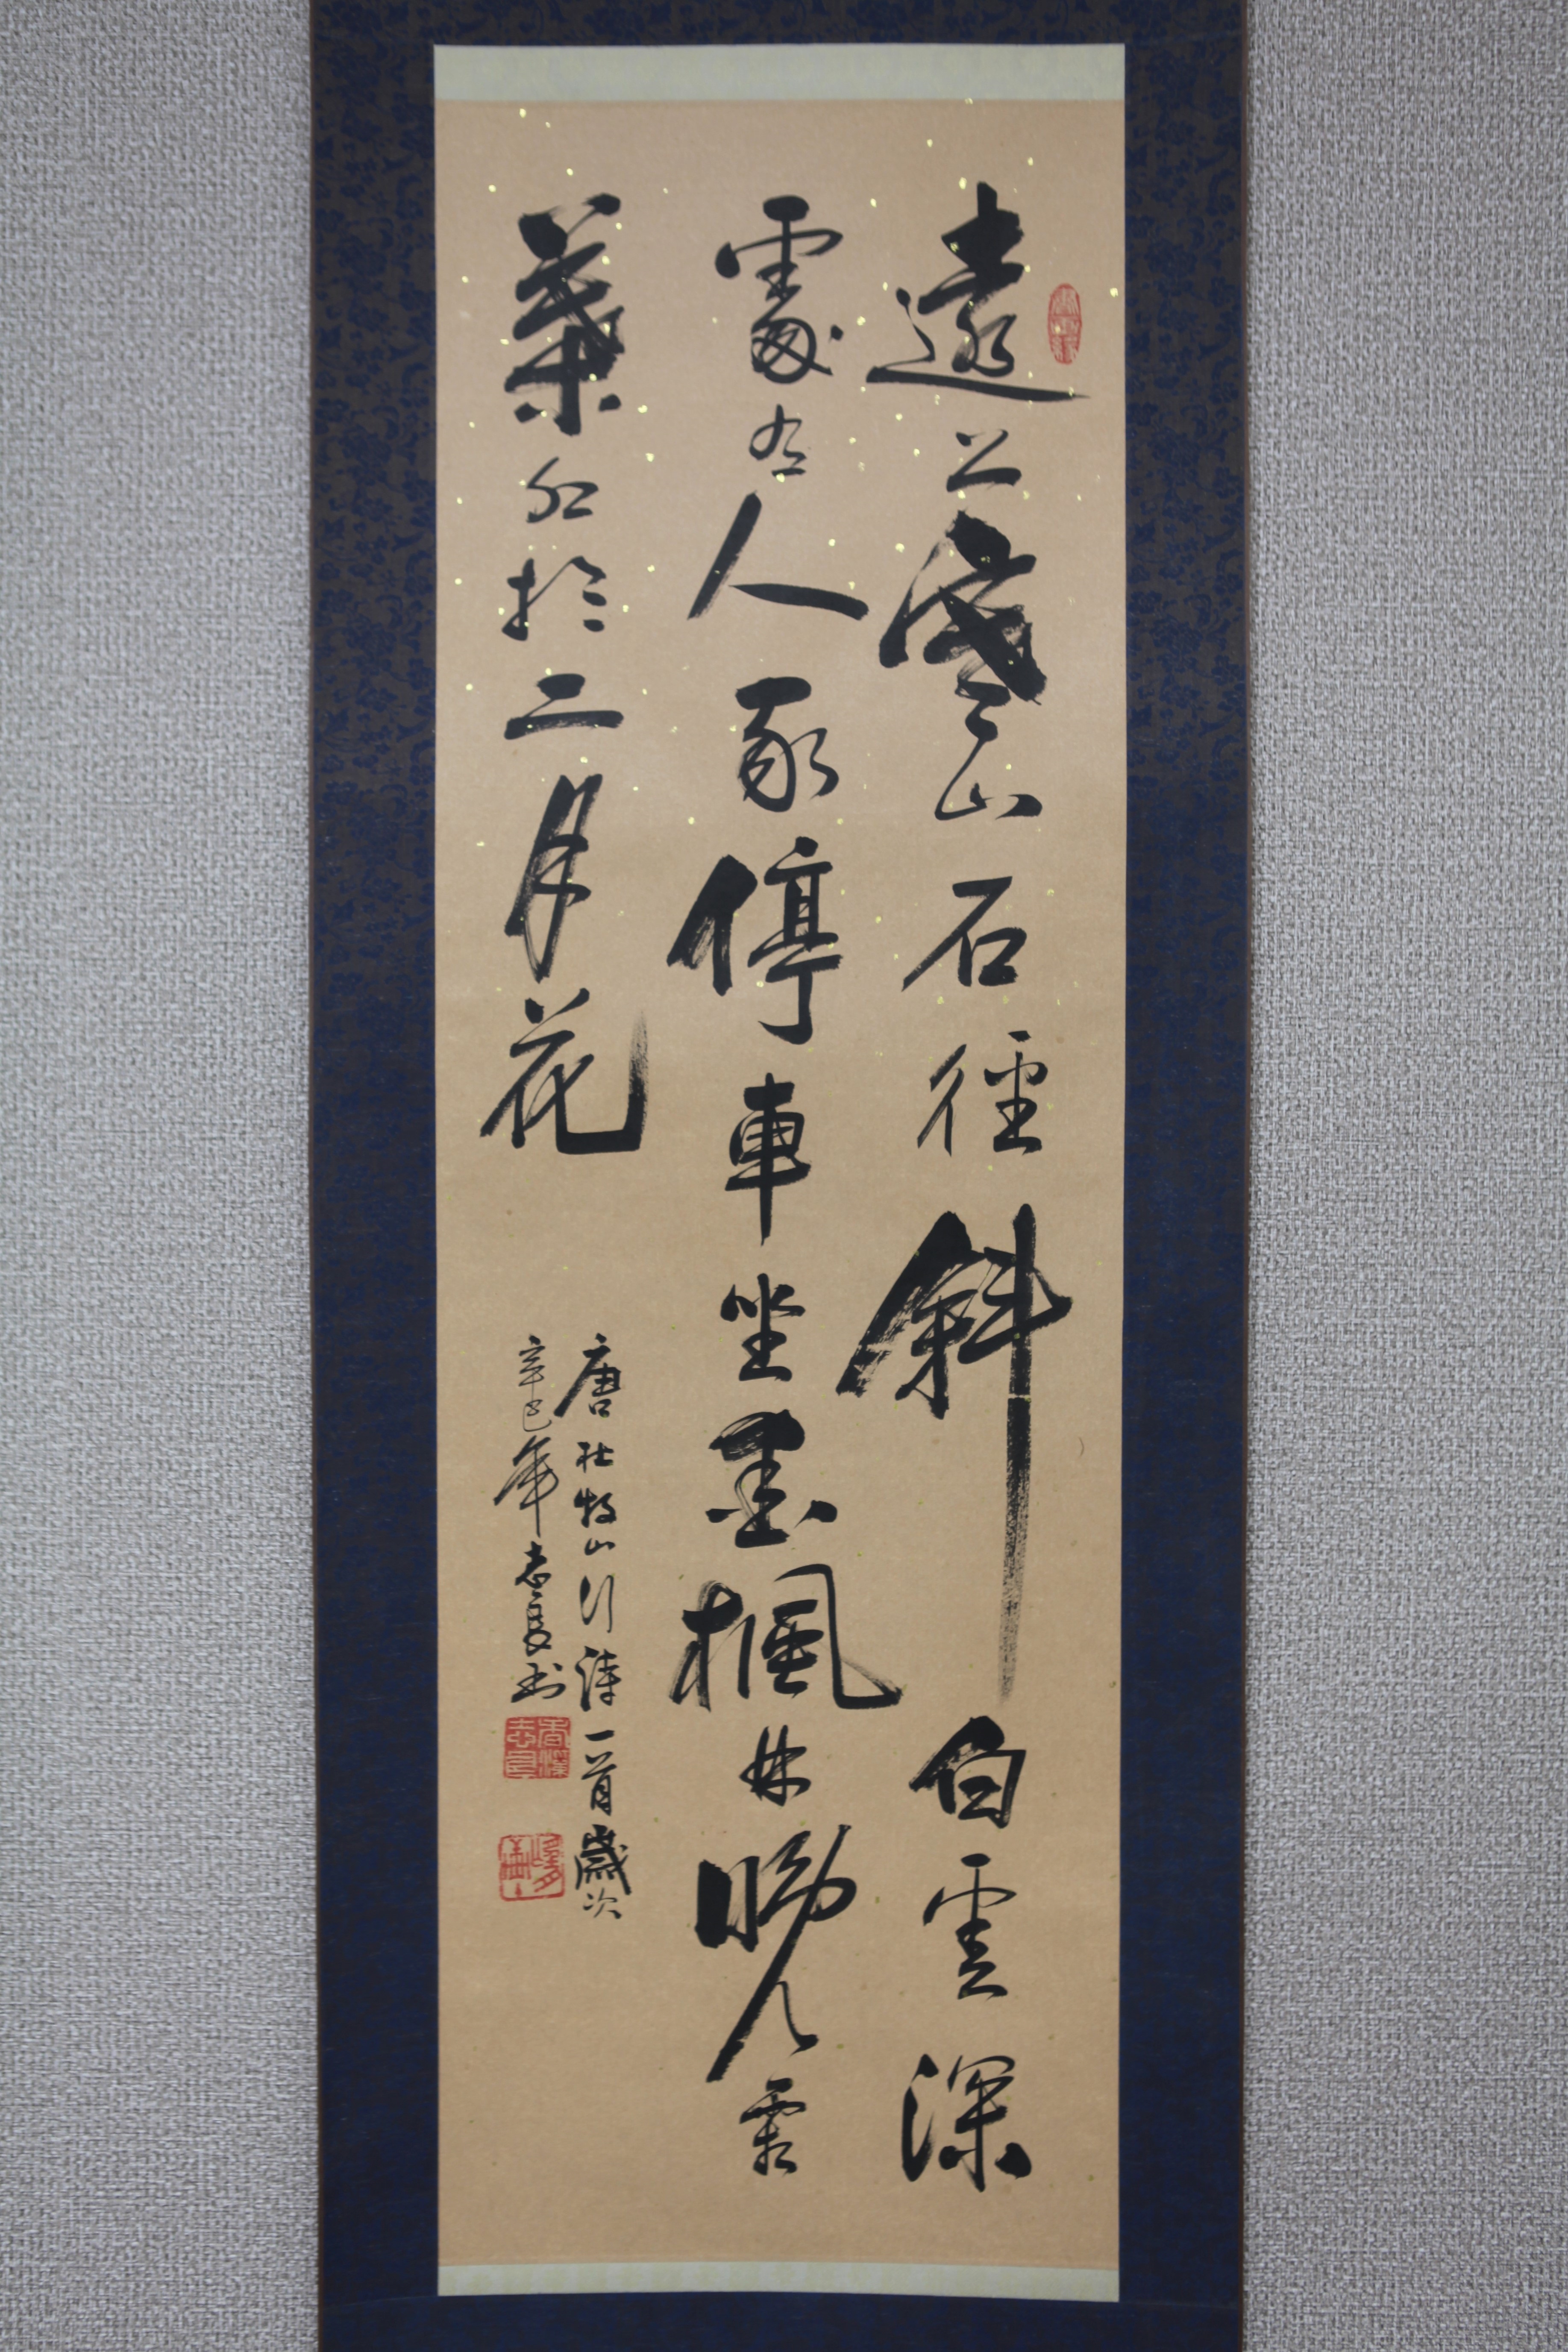 遠上寒山石徑斜白雲深
處有人家停車坐愛楓林晚霜
葉紅於二月花
唐杜牧山行詩一首歲次
辛巳年志書